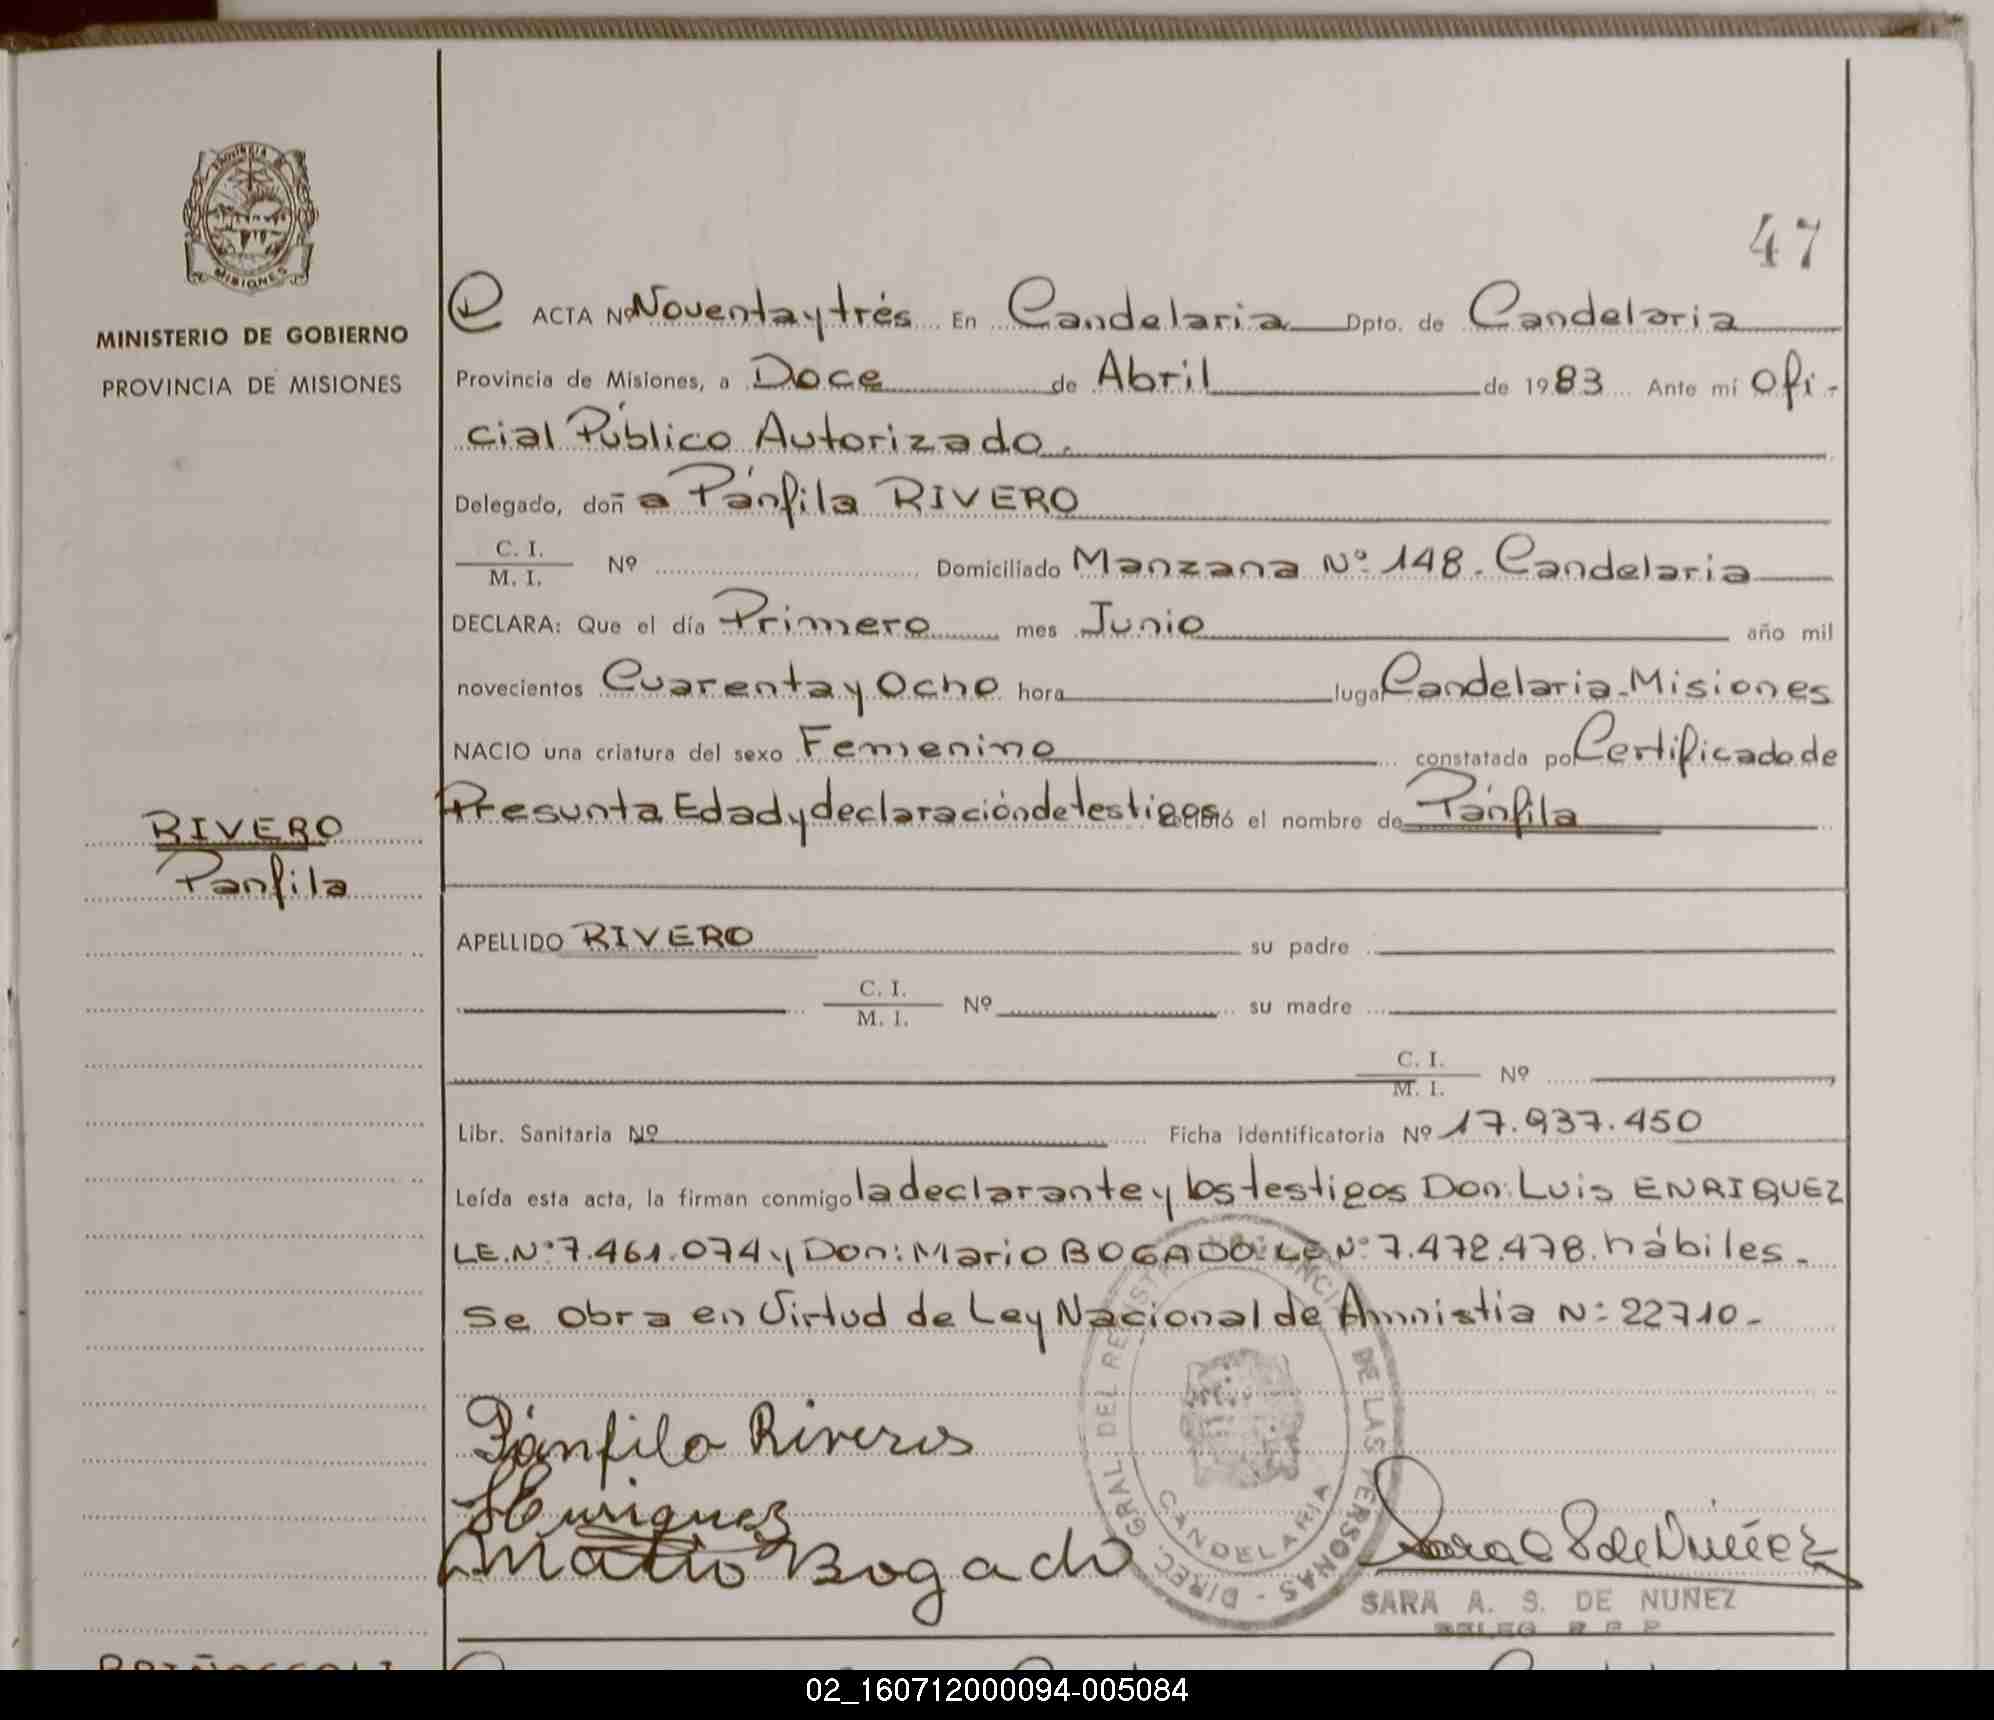 47
PROVINCIA DE
MISIONES
MINISTERIO DE GOBIERNO
PROVINCIA DE MISIONES
RIVERO
Panfila
ACTA Nº Noventa y trés En Candelaria Dpto. de Candelaria
Provincia de Misiones, a Doce de Abril de 1983 Ante mí Ofi-
cial Público Autorizado.
Delegado, doñ a Pánfila RIVERO
C. I.
M. I. Nº Domiciliado Manzana Nº 148. Candelaria
DECLARA: Que el día Primero mes Junio año mil
novecientos Cuarenta y Ocho hora lugar Candelaria-Misiones
NACIO una criatura del sexo Femenino constatada por Certificado de
Presunta Edad y declaración de testigos recibió el nombre de Pánfila
APELLIDO RIVERO su padre
C. I.
M. I. Nº su madre
C. I.
M. I. Nº
Libr. Sanitaria Nº Ficha identificatoria Nº 17.937.450
Leída esta acta, la firman conmigo la declarante y los testigos Don: Luis ENRIQUEZ
LE.Nº 7.461.074 y Don: Mario BOGADO: LE Nº 7.472.478. hábiles.
Se obra en Virtud de Ley Nacional de Amnistia Nº 22710-
Pánfila Riveros
Enriquez
Mario Bogado
DIREC. GRAL DEL REGISTRO PROVINCIAL DE LAS PERSONAS -
CANDELARIA
Sara S de Nuñez
SARA A. S. DE NUÑEZ
DELEG R P P
02_160712000094-005084